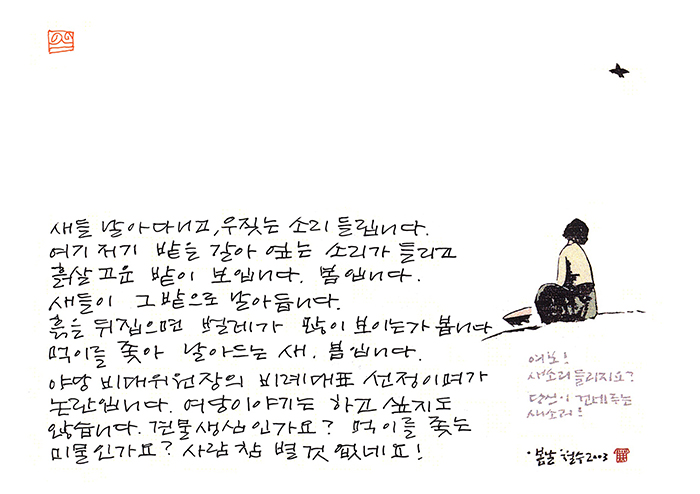 새들 날아다니고, 우짖는 소리 들립니다.
여기저기 밭을 갈아 엎는 소리가 들리고
흙살 고운 밭이 보입니다. 봄입니다.
새들이 그 밭으로 날아듭니다.
흙을 뒤집으면 벌레가 많이 보이는가 봅니다
먹이를 좇아 날아드는 새. 봄입니다.
야당 비대위원장의 비례대표 선정이며가
논란입니다. 여당이야기는 하고 싶지도
않습니다. 견물생심인가요? 먹이를 좇는
미물인가요? 사람 참 별 것 없네요!
여보!
새소리 들리지요?
당신이 건네주는
새소리!
봄날 철수 2003